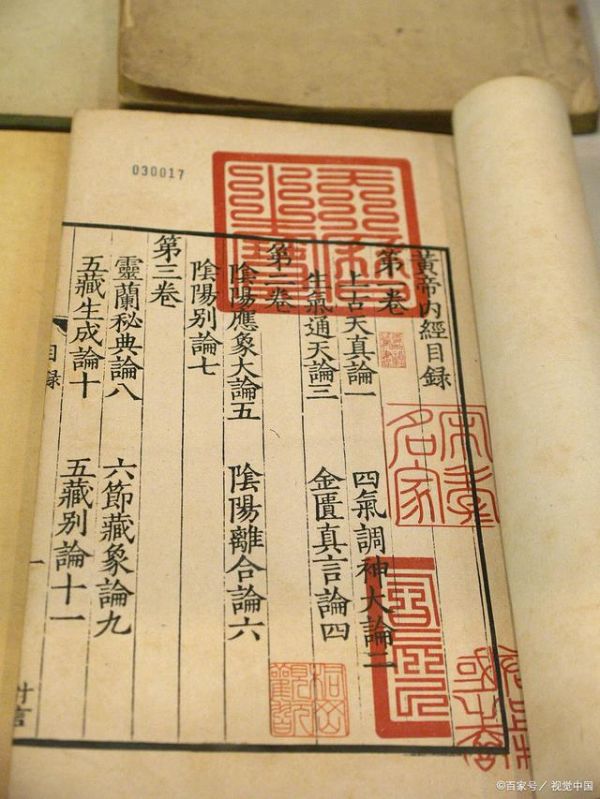 030017
黃帝內經目錄
第一卷
上古天真論一 四氣調神大論二
生氣通天論三 金匱真言論四
第二卷
陰陽應象大論五 陰陽離合論六
陰陽別論七
第三卷
靈蘭秘典論八 六節藏象論九
五藏生成論十 五藏別論十一
目錄
名家
©百家号/视觉中国